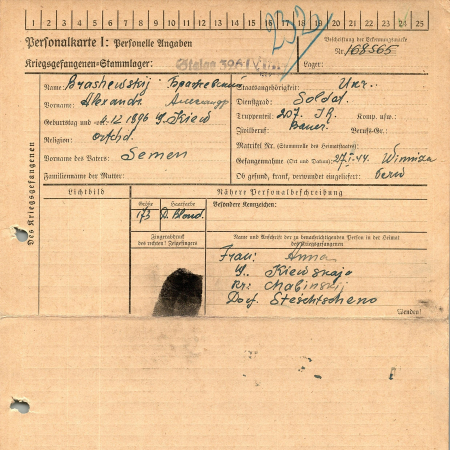 1 2 3 4 5 6 7 8 9 10 11 12 13 14 15 16 17 18 19 20 21 22 23 24 25
Personalkarte I: Personelle Angaben
Beschriftung der Erkennungsmarke
Nr. 168565
Kriegsgefangenen-Stammlager: Stalag
Lager:
Des Kriegsgefangenen
Name: Brashewskij
Staatsangehörigkeit: Ukr.
Vorname: Alexandr Александр
Dienstgrad: Soldat.
Truppenteil: 207. J.R. Komp. usw.:
Geburtstag und -ort: 4.12.1896 G. Kiew
Zivilberuf: Bauer Berufs-Gr.:
Religion: orthd.
Matrikel Nr. (Stammrolle des Heimatstaates):
Vorname des Vaters: Semen
Gefangennahme (Ort und Datum): 27.I.44. Winniza
Familienname der Mutter:
Ob gesund, krank, verwundet eingeliefert:
Lichtbild
Nähere Personalbeschreibung
Größe
Haarfarbe
Besondere Kennzeichen:
173 D. Blond.
Fingerabdruck
des rechten! Zeigefingers
Name und Anschrift der zu benachrichtigenden Person in der Heimat
des Kriegsgefangenen
Frau: Anna
G. Kiewskaja
Kr: Chabinskij
Dorf Steschtscheno
Wenden!